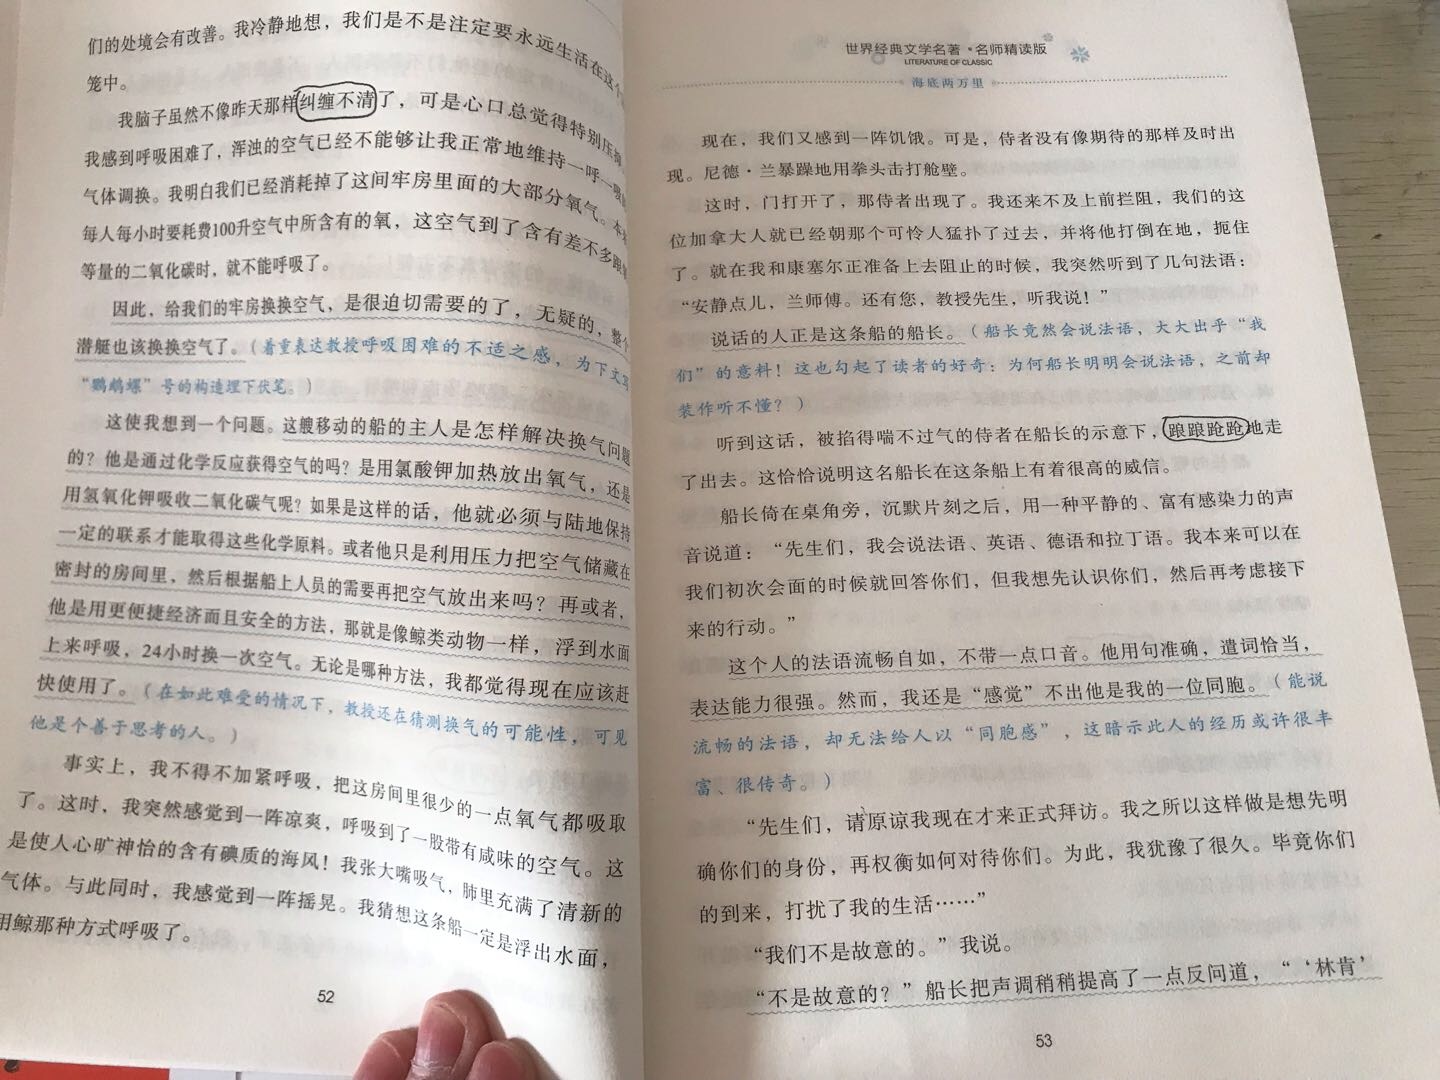 们的处境会有改善。我冷静地想，我们是不是注定要永远生活在这个
笼中。
我脑子虽然不像昨天那样纠缠不清了，可是心口总觉得特别压
我感到呼吸困难了，浑浊的空气已经不能够让我正常地维持一呼一
气体调换。我明白我们已经消耗掉了这间牢房里面的大部分氧气。本
每人每小时要耗费100升空气中所含有的氧，这空气到了含有差不多跟
等量的二氧化碳时，就不能呼吸了。
因此，给我们的牢房换换空气，是很迫切需要的了，无疑的，整个
潜艇也该换换空气了。（着重表达教授呼吸困难的不适之感，为下文写
“鹦鹉螺”号的构造埋下伏笔。）
这使我想到一个问题。这艘移动的船的主人是怎样解决换气问题
的？他是通过化学反应获得空气的吗？是用氯酸钾加热放出氧气，还是
用氢氧化钾吸收二氧化碳气呢？如果是这样的话，他就必须与陆地保持
一定的联系才能取得这些化学原料。或者他只是利用压力把空气储藏在
密封的房间里，然后根据船上人员的需要再把空气放出来吗？再或者，
他是用更便捷经济而且安全的方法，那就是像鲸类动物一样，浮到水面
上来呼吸，24小时换一次空气。无论是哪种方法，我都觉得现在应该赶
快使用了。（在如此难受的情况下，教授还在猜测换气的可能性，可见
他是个善于思考的人。）
事实上，我不得不加紧呼吸，把这房间里很少的一点氧气都吸取
了。这时，我突然感觉到一阵凉爽，呼吸到了一股带有咸味的空气。这
是使人心旷神怡的含有碘质的海风！我张大嘴吸气，肺里充满了清新的
气体。与此同时，我感觉到一阵摇晃。我猜想这条船一定是浮出水面，
用鲸那种方式呼吸了。
52
世界经典文学名著·名师精读版
LITERATURE OF CLASSIC
海底两万里
现在，我们又感到一阵饥饿。可是，侍者没有像期待的那样及时出
现。尼德·兰暴躁地用拳头击打舱壁。
这时，门打开了，那侍者出现了。我还来不及上前拦阻，我们的这
位加拿大人就已经朝那个可怜人猛扑了过去，并将他打倒在地，扼住
了。就在我和康塞尔正准备上去阻止的时候，我突然听到了几句法语：
“安静点儿，兰师傅。还有您，教授先生，听我说！”
说话的人正是这条船的船长。（船长竟然会说法语，大大出乎“我
们”的意料！这也勾起了读者的好奇：为何船长明明会说法语，之前却
装作听不懂？）
听到这话，被掐得喘不过气的侍者在船长的示意下，踉踉跄跄地走
了出去。这恰恰说明这名船长在这条船上有着很高的威信。
船长倚在桌角旁，沉默片刻之后，用一种平静的、富有感染力的声
音说道：“先生们，我会说法语、英语、德语和拉丁语。我本来可以在
我们初次会面的时候就回答你们，但我想先认识你们，然后再考虑接下
来的行动。”
这个人的法语流畅自如，不带一点口音。他用句准确，遣词恰当，
表达能力很强。然而，我还是“感觉”不出他是我的一位同胞。（能说
流畅的法语，却无法给人以“同胞感”，这暗示此人的经历或许很丰
富、很传奇。）
“先生们，请原谅我现在才来正式拜访。我之所以这样做是想先明
确你们的身份，再权衡如何对待你们。为此，我犹豫了很久。毕竟你们
的到来，打扰了我的生活……”
“我们不是故意的。”我说。
“不是故意的？”船长把声调稍稍提高了一点反问道，“‘林肯’
53